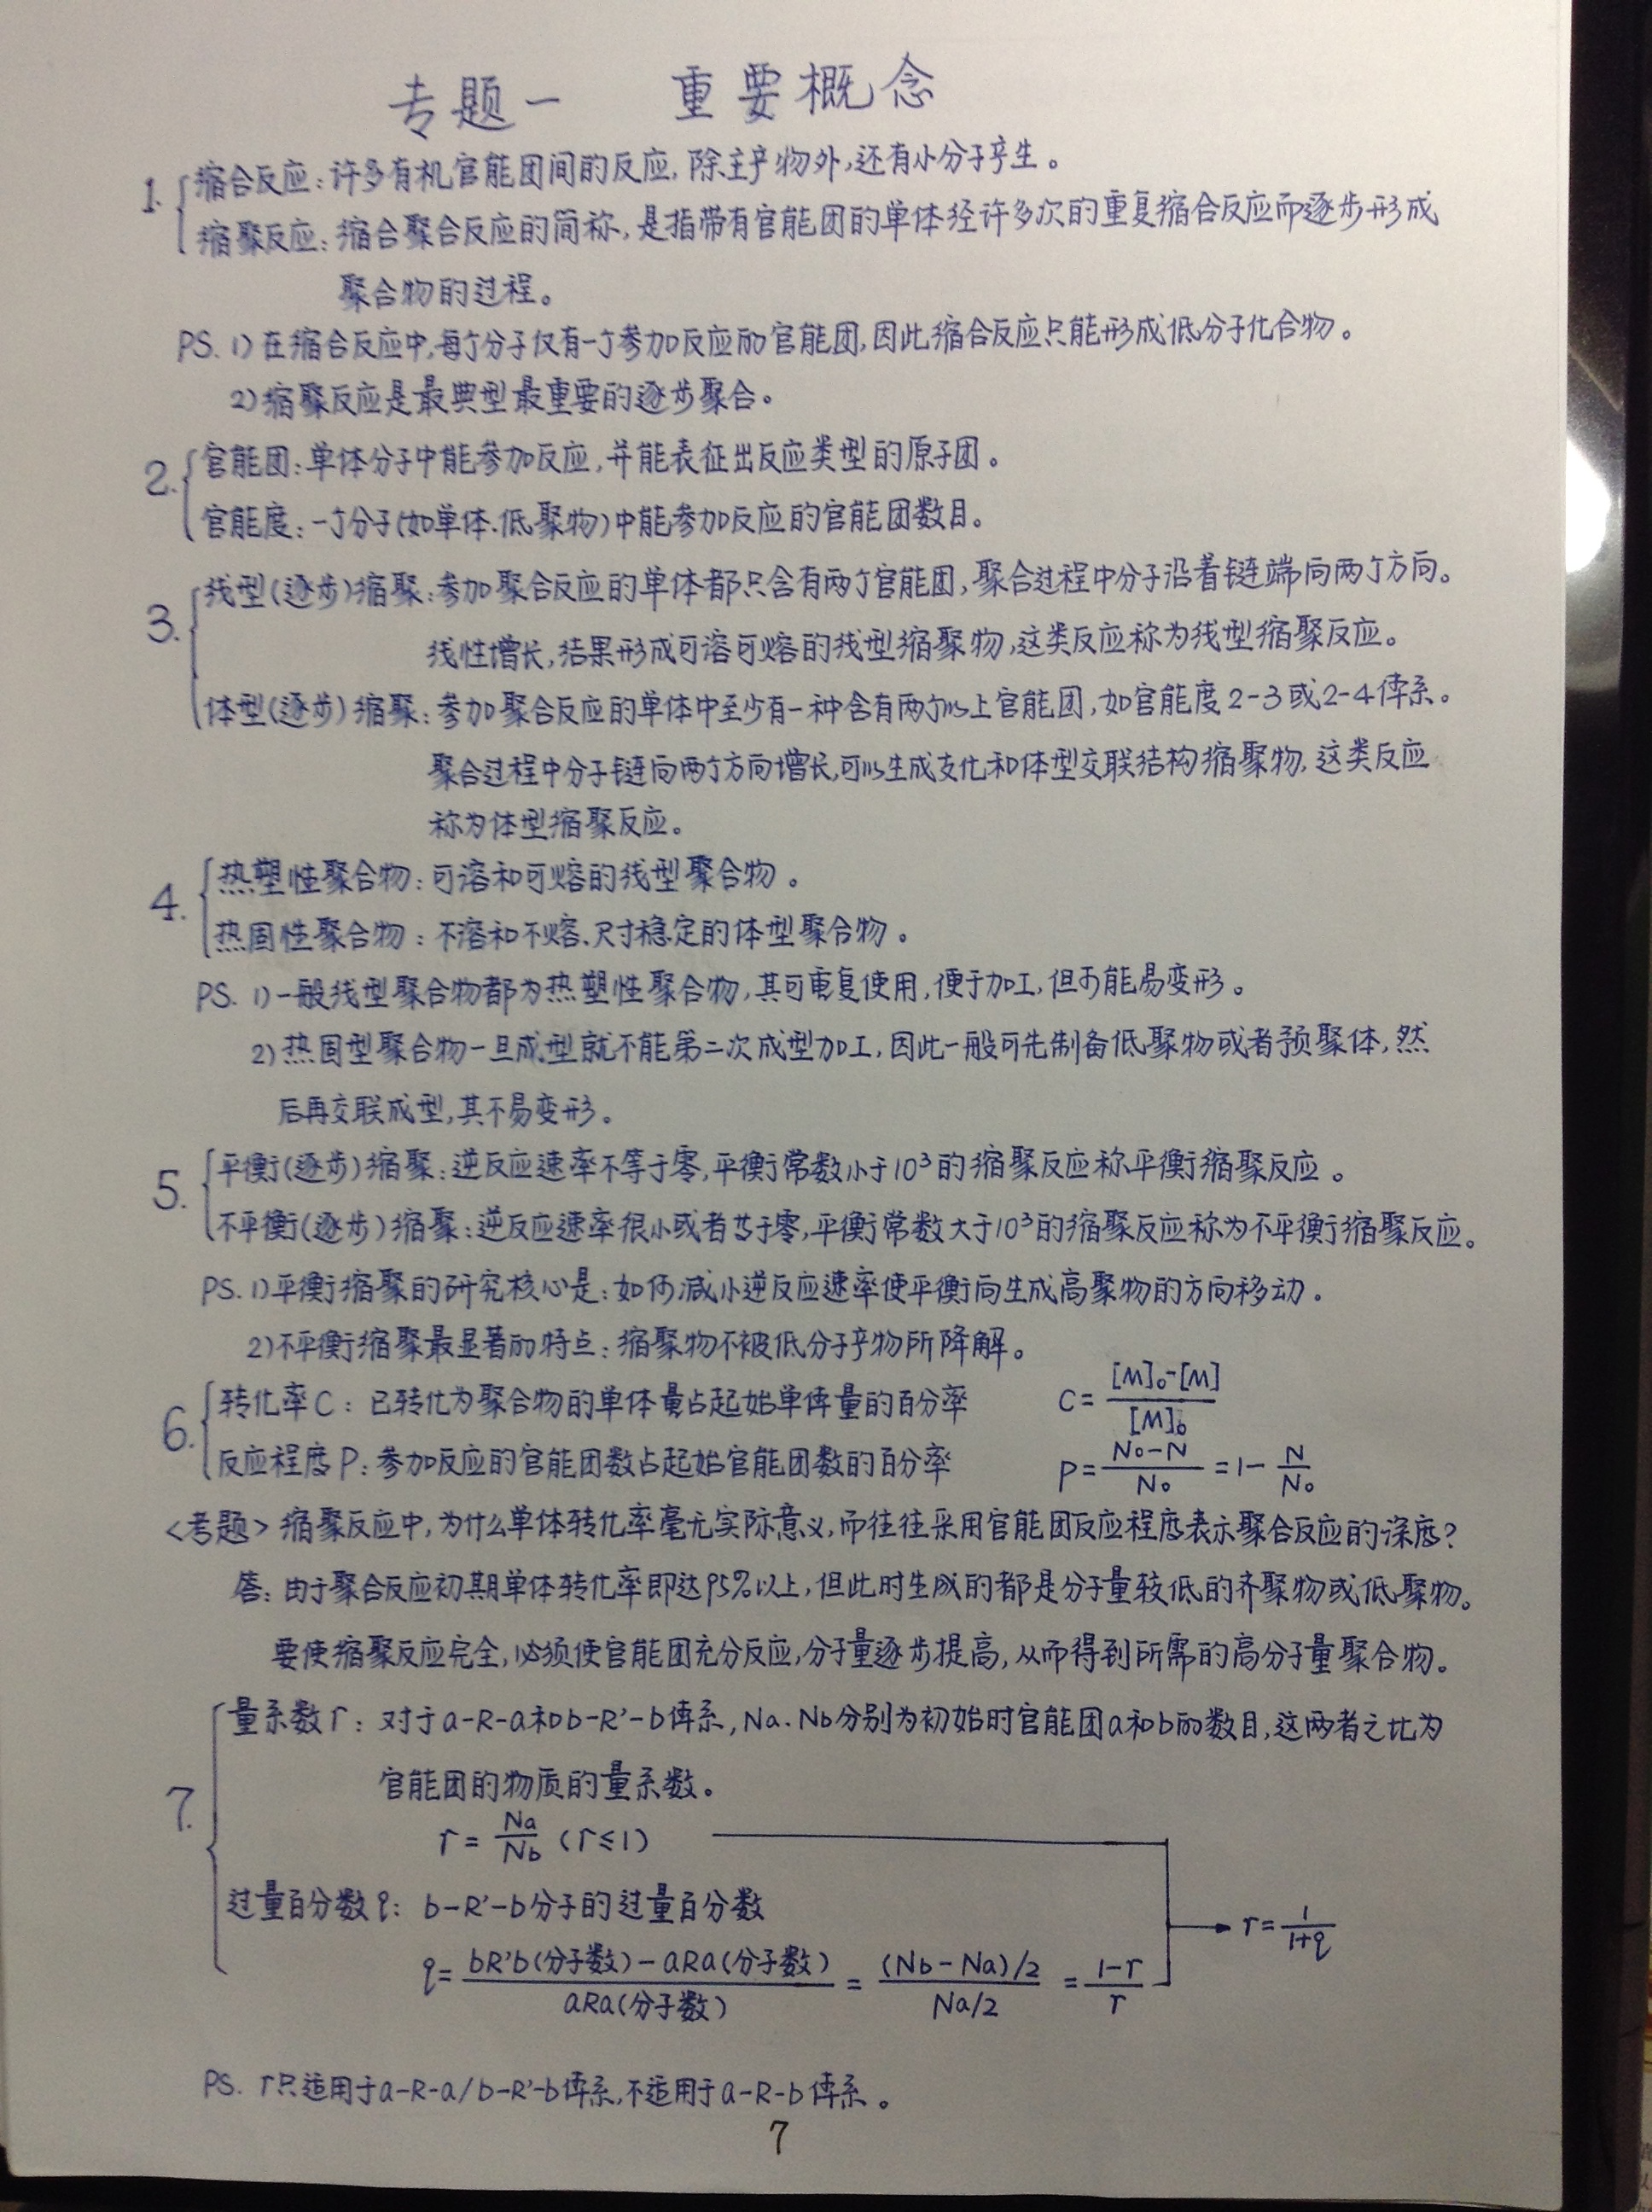 专题一 重要概念
1. 缩合反应:许多有机官能团间的反应,除主产物外,还有小分子产生。
缩聚反应:缩合聚合反应的简称,是指带有官能团的单体经许多次的重复缩合反应而逐步形成
聚合物的过程。
PS. 1) 在缩合反应中,每个分子仅有一个参加反应的官能团,因此缩合反应只能形成低分子化合物。
2) 缩聚反应是最典型最重要的逐步聚合。
2. 官能团:单体分子中能参加反应,并能表征出反应类型的原子团。
官能度:一个分子(如单体、低聚物)中能参加反应的官能团数目。
3. 线型(逐步)缩聚:参加聚合反应的单体都只含有两个官能团,聚合过程中分子沿着链端向两个方向。
线性增长,结果形成可溶可熔的线型缩聚物,这类反应称为线型缩聚反应。
体型(逐步)缩聚:参加聚合反应的单体中至少有一种含有两个以上官能团,如官能度2-3或2-4体系。
聚合过程中分子链向两个方向增长,可以生成支化和体型交联结构缩聚物,这类反应
称为体型缩聚反应。
4. 热塑性聚合物:可溶和可熔的线型聚合物。
热固性聚合物:不溶和不熔、尺寸稳定的体型聚合物。
PS. 1) 一般线型聚合物都为热塑性聚合物,其可重复使用,便于加工,但可能易变形。
2) 热固型聚合物一旦成型就不能第二次成型加工,因此一般可先制备低聚物或者预聚体,然
后再交联成型,其不易变形。
5. 平衡(逐步)缩聚:逆反应速率不等于零,平衡常数小于10³的缩聚反应称平衡缩聚反应。
不平衡(逐步)缩聚:逆反应速率很小或者等于零,平衡常数大于10³的缩聚反应称为不平衡缩聚反应。
PS. 1) 平衡缩聚的研究核心是:如何减小逆反应速率使平衡向生成高聚物的方向移动。
2) 不平衡缩聚最显著的特点:缩聚物不被低分子产物所降解。
6. 转化率C:已转化为聚合物的单体量占起始单体量的百分率 C=([M]₀-[M])/[M]₀
反应程度P:参加反应的官能团数占起始官能团数的百分率 P=(N₀-N)/N₀=1-N/N₀
<考题> 缩聚反应中,为什么单体转化率毫无实际意义,而往往采用官能团反应程度表示聚合反应的深度?
答:由于聚合反应初期单体转化率即达95%以上,但此时生成的都是分子量较低的齐聚物或低聚物。
要使缩聚反应完全,必须使官能团充分反应,分子量逐步提高,从而得到所需的高分子量聚合物。
7. 量系数r:对于a-R-a和b-R'-b体系,Na、Nb分别为初始时官能团a和b的数目,这两者之比为
官能团的物质的量系数。
r=Na/Nb (r≤1)
过量百分数q:b-R'-b分子的过量百分数
r=1/(1+q)
q=(bR'b(分子数)-aRa(分子数))/aRa(分子数)=((Nb-Na)/2)/(Na/2)=(1-r)/r
PS. r只适用于a-R-a/b-R'-b体系,不适用于a-R-b体系。
7